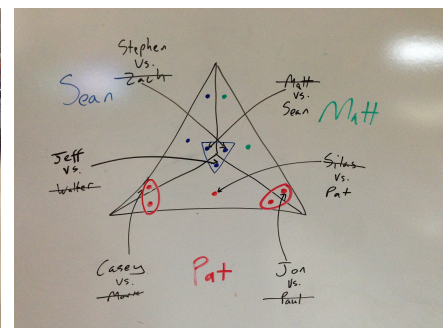 Stephen
vs.
Zach
Sean
Matt
vs.
Sean
Matt
Jeff
vs.
Walter
Silas
vs.
Pat
Casey
vs.
Pat
Jon
vs.
Paul